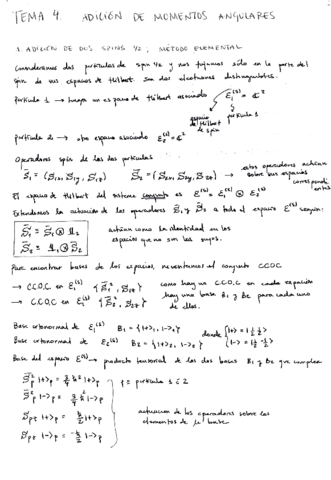 TEMA 4. ADICIÓN DE MOMENTOS ANGULARES
1. ADICIÓN DE DOS SPINS 1/2; MÉTODO ELEMENTAL
Consideremos dos partículas de spin 1/2 y nos fijamos sólo en la parte del
spin de sus espacios de Hilbert. Son dos electrones distinguibles.
Partícula 1 → tenga un espacio de Hilbert asociado ξ₁⁽ˢ⁾ = ℂ²
espacio del Hilbert de spin
partícula 1
Partícula 2 → otro espacio asociado ξ₂⁽ˢ⁾ = ℂ²
Operadores spin de las dos partículas
S⃗₁ = (S₁ₓ, S₁y, S₁z) S⃗₂ = (S₂ₓ, S₂y, S₂z) → estos operadores actúan
sobre sus espacios
correspondientes
El espacio de Hilbert del sistema conjunto es ξ⁽ˢ⁾ = ξ₁⁽ˢ⁾ ⊗ ξ₂⁽ˢ⁾
Extendamos la actuación de los operadores S⃗₁ y S⃗₂ a todo el espacio ξ⁽ˢ⁾ según:
S⃗₁ = S⃗₁ ⊗ 𝟙₂
S⃗₂ = 𝟙₁ ⊗ S⃗₂
actúan como la identidad en los
espacios que no son los suyos.
Para encontrar bases de los espacios, necesitamos el conjunto CCOC
→ C.C.O.C en ξ₁⁽ˢ⁾ {S⃗₁², S₁z}
→ C.C.O.C en ξ₂⁽ˢ⁾ {S⃗₂², S₂z}
como hay un C.C.O.C en cada espacio
hay una base B₁ y B₂ para cada uno
de ellos.
Base ortonormal de ξ₁⁽ˢ⁾ B₁ = {|+>₁, |->₁}
Base ortonormal de ξ₂⁽ˢ⁾ B₂ = {|+>₂, |->₂}
donde {|+> = |½ ½> |-> = |½ -½>
Base del espacio ξ⁽ˢ⁾ → producto tensorial de las dos bases B₁ y B₂ que cumplen
S⃗p² |+>p = ¾ ħ² |+>p
S⃗p² |->p = ¾ ħ² |->p
Spz |+>p = ħ/2 |+>p
Spz |->p = -ħ/2 |->p
p = partícula 1 ó 2
actuación de los operadores sobre los
elementos de la base